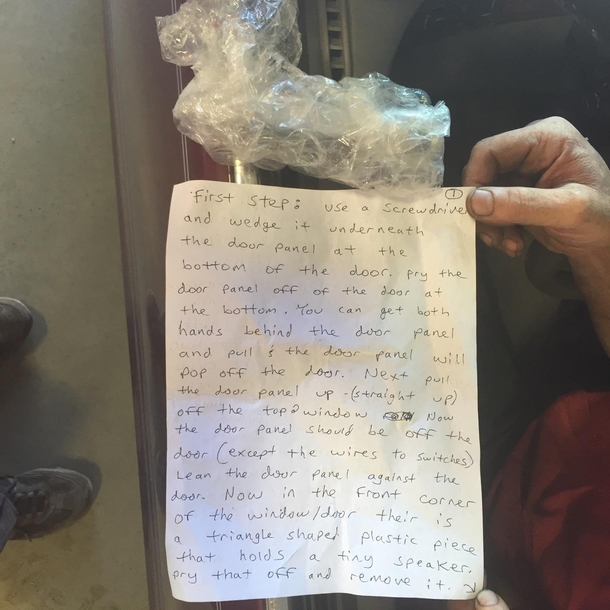 ①
First Step: use a screwdriver
and wedge it underneath
the door panel at the
bottom of the door. pry the
door panel off of the door at
the bottom. You can get both
hands behind the door panel
and pull & the door panel will
pop off the door. Next pull
the door panel up - (straight up)
off the top? window Now
the door panel should be off the
door (except the wires to switches)
Lean the door panel against the
door. Now in the front corner
of the window/door their is
a triangle shaped plastic piece
that holds a tiny speaker.
pry that off and remove it. ↘